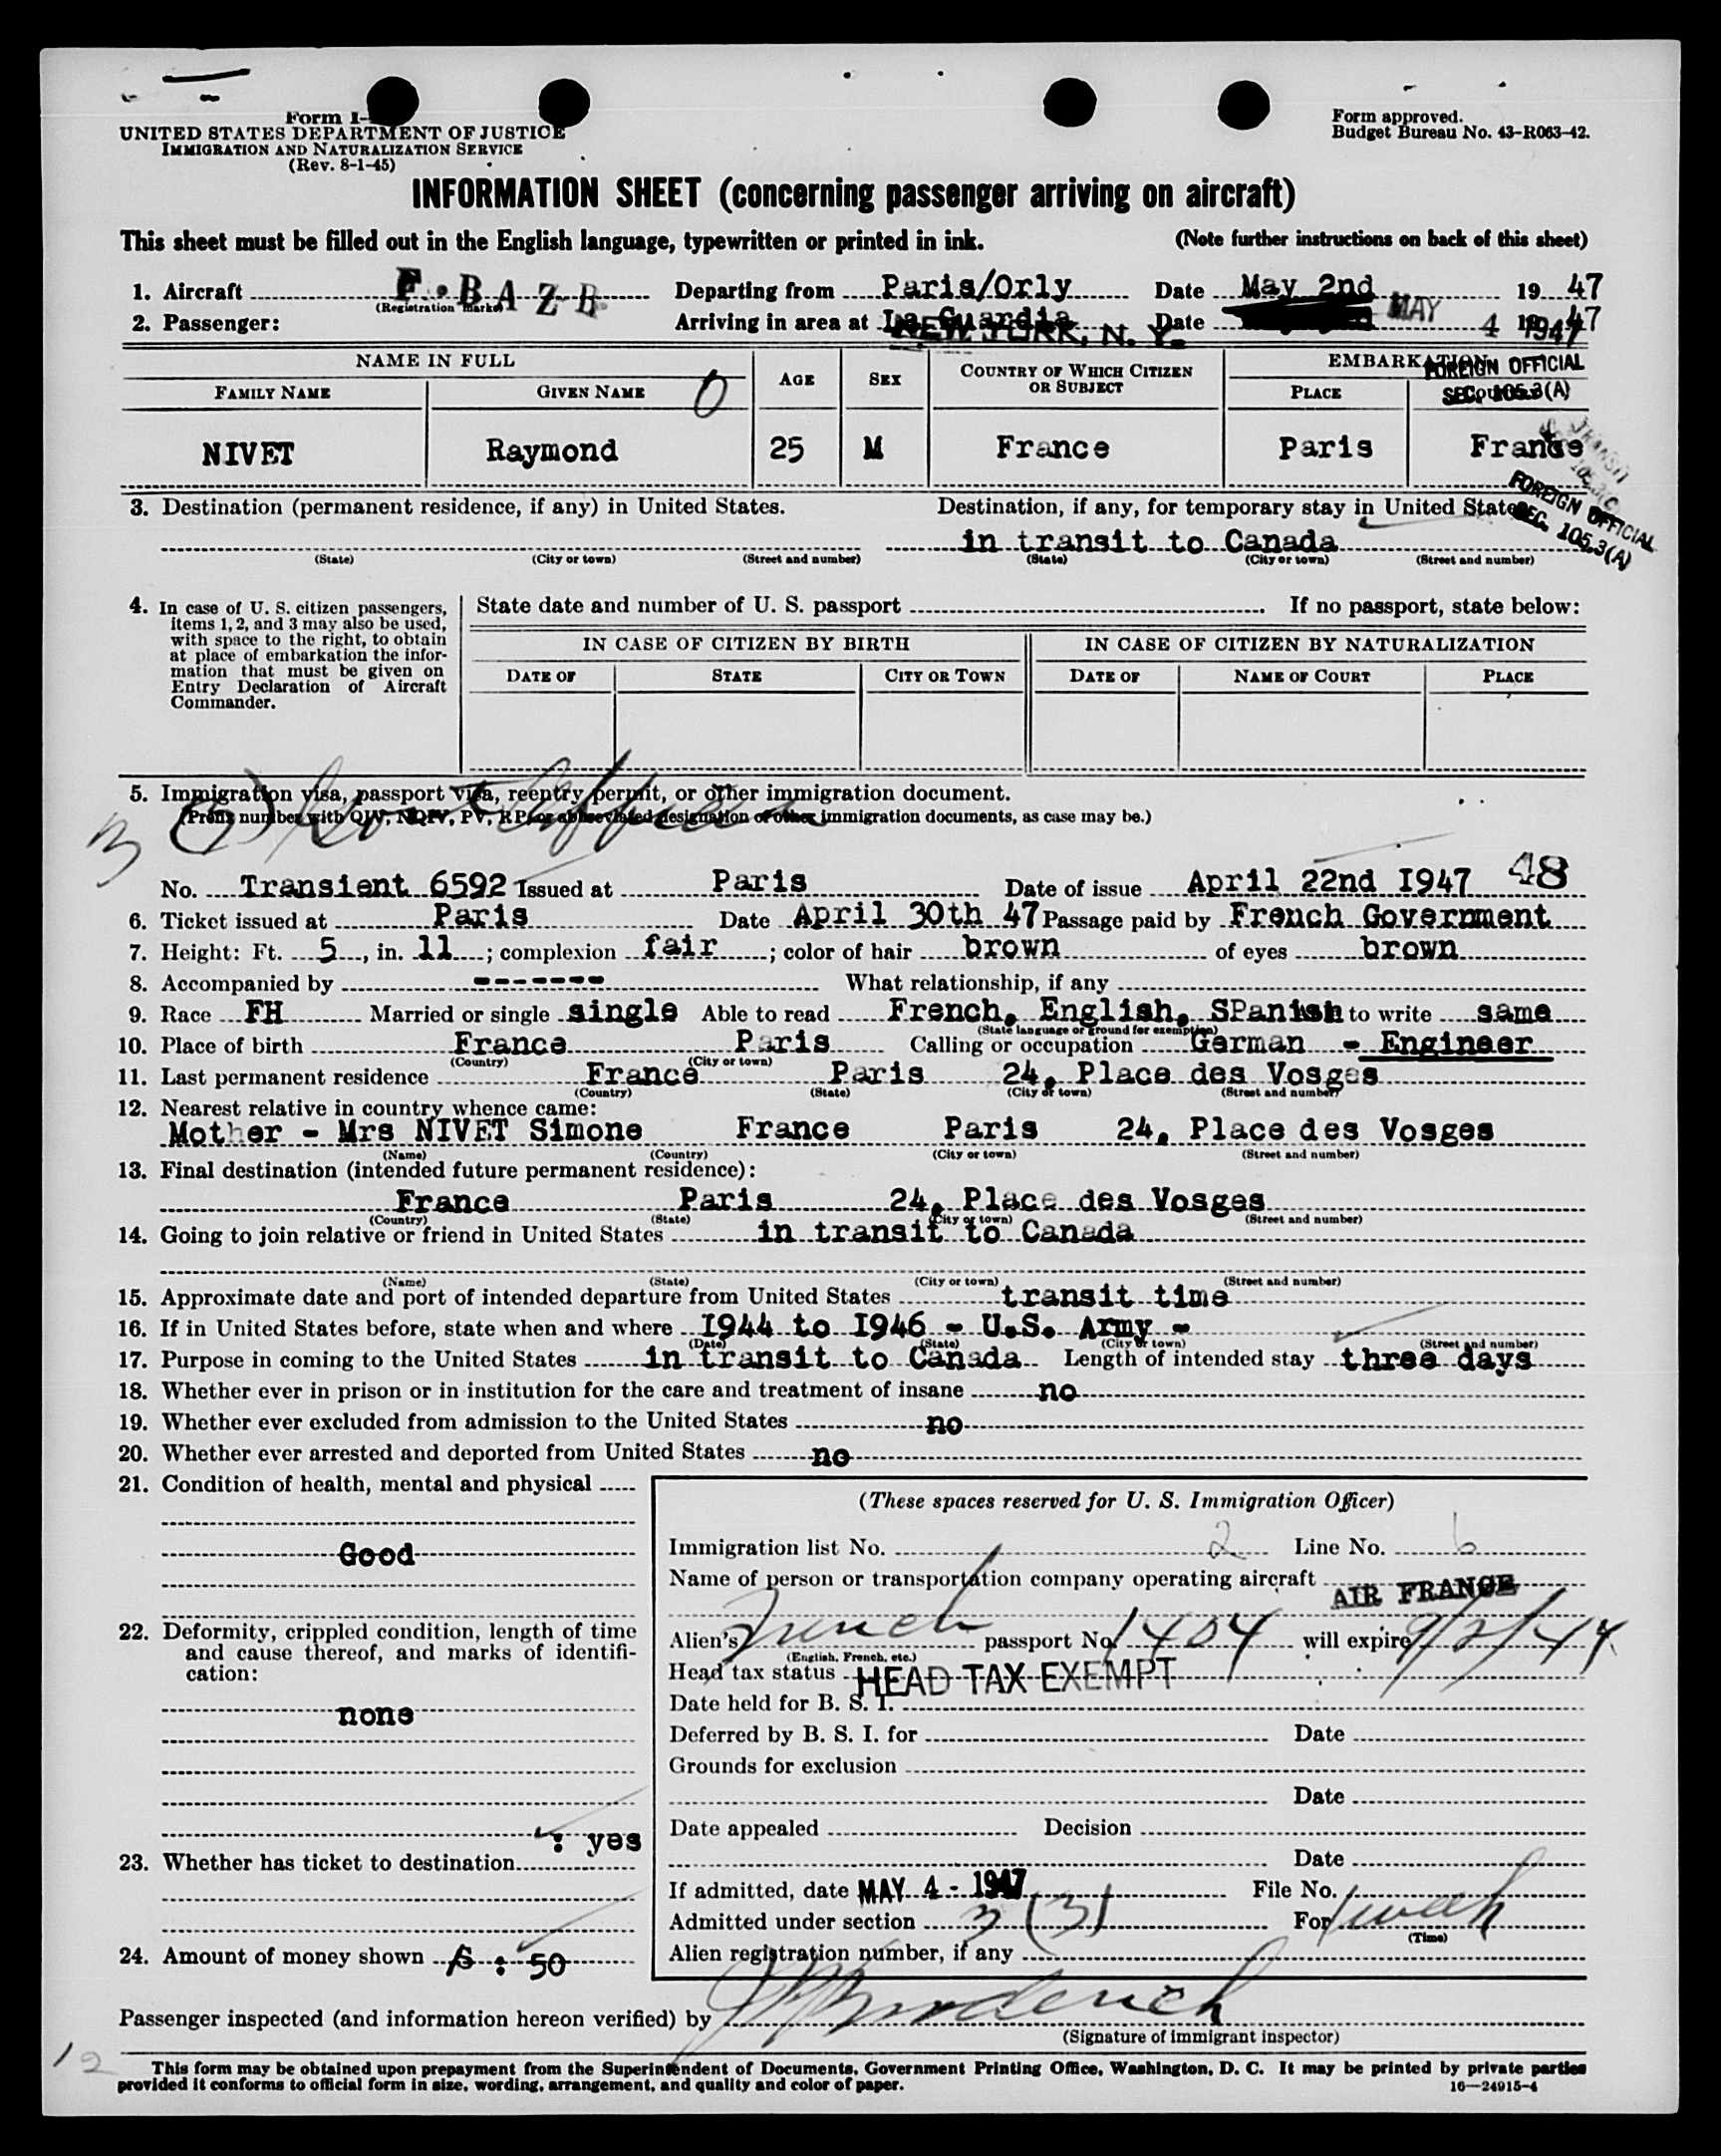 Form I-
UNITED STATES DEPARTMENT OF JUSTICE
IMMIGRATION AND NATURALIZATION SERVICE
(Rev. 8-1-45)
Form approved.
Budget Bureau No. 43-R063-42.
INFORMATION SHEET (concerning passenger arriving on aircraft)
This sheet must be filled out in the English language, typewritten or printed in ink. (Note further instructions on back of this sheet)
1. Aircraft F.BAZB Departing from Paris/Orly Date May 2nd 1947
(Registration marks)
2. Passenger: Arriving in area at La Guardia Date MAY 4 1947 1947
NEW YORK, N. Y.
NAME IN FULL AGE SEX COUNTRY OF WHICH CITIZEN OR SUBJECT EMBARKATION
FOREIGN OFFICIAL
FAMILY NAME GIVEN NAME O PLACE COUNTRY
SEC. 105.3(A)
NIVET Raymond 25 M France Paris France
TRANSIT
FOREIGN OFFICIAL
SEC. 105.3(A)
3. Destination (permanent residence, if any) in United States. Destination, if any, for temporary stay in United States
in transit to Canada
(State) (City or town) (Street and number) (State) (City or town) (Street and number)
4. In case of U. S. citizen passengers, items 1, 2, and 3 may also be used, with space to the right, to obtain at place of embarkation the information that must be given on Entry Declaration of Aircraft Commander.
State date and number of U. S. passport . If no passport, state below:
IN CASE OF CITIZEN BY BIRTH IN CASE OF CITIZEN BY NATURALIZATION
DATE OF STATE CITY OR TOWN DATE OF NAME OF COURT PLACE
5. Immigration visa, passport visa, reentry permit, or other immigration document.
(Prefix number with QIV, NQIV, PV, RP, or abbreviated designation of other immigration documents, as case may be.)
3 (3)
No. Transient 6592 Issued at Paris Date of issue April 22nd I947 48
6. Ticket issued at Paris Date April 30th 47 Passage paid by French Government
7. Height: Ft. 5, in. 11; complexion fair; color of hair brown of eyes brown
8. Accompanied by ------- What relationship, if any
9. Race FH Married or single single Able to read French, English, SPanish to write same
(State language or ground for exemption)
10. Place of birth France Paris Calling or occupation German - Engineer
(Country) (City or town)
11. Last permanent residence France Paris 24, Place des Vosges
(Country) (State) (City or town) (Street and number)
12. Nearest relative in country whence came:
Mother - Mrs NIVET Simone France Paris 24, Place des Vosges
(Name) (Country) (City or town) (Street and number)
13. Final destination (intended future permanent residence):
France Paris 24, Place des Vosges
(Country) (State) (City or town) (Street and number)
14. Going to join relative or friend in United States in transit to Canada
(Name) (State) (City or town) (Street and number)
15. Approximate date and port of intended departure from United States transit time
16. If in United States before, state when and where I944 to I946 - U.S. Army -
(Date) (State) (City or town) (Street and number)
17. Purpose in coming to the United States in transit to Canada Length of intended stay three days
18. Whether ever in prison or in institution for the care and treatment of insane no
19. Whether ever excluded from admission to the United States no
20. Whether ever arrested and deported from United States no
21. Condition of health, mental and physical
Good
22. Deformity, crippled condition, length of time and cause thereof, and marks of identification:
none
: yes
23. Whether has ticket to destination
24. Amount of money shown $ : 50
(These spaces reserved for U. S. Immigration Officer)
Immigration list No. 2 Line No. 6
Name of person or transportation company operating aircraft
AIR FRANCE
Alien's French passport No. 1404 will expire 9/2/44
(English, French, etc.)
Head tax status HEAD TAX EXEMPT
Date held for B. S. I.
Deferred by B. S. I. for Date
Grounds for exclusion
Date
Date appealed Decision
Date
If admitted, date MAY 4 - 1947 File No.
Admitted under section 3 (3) For 1 week
(Time)
Alien registration number, if any
Passenger inspected (and information hereon verified) by
(Signature of immigrant inspector)
12
This form may be obtained upon prepayment from the Superintendent of Documents, Government Printing Office, Washington, D. C. It may be printed by private parties
provided it conforms to official form in size, wording, arrangement, and quality and color of paper. 16—24915-4